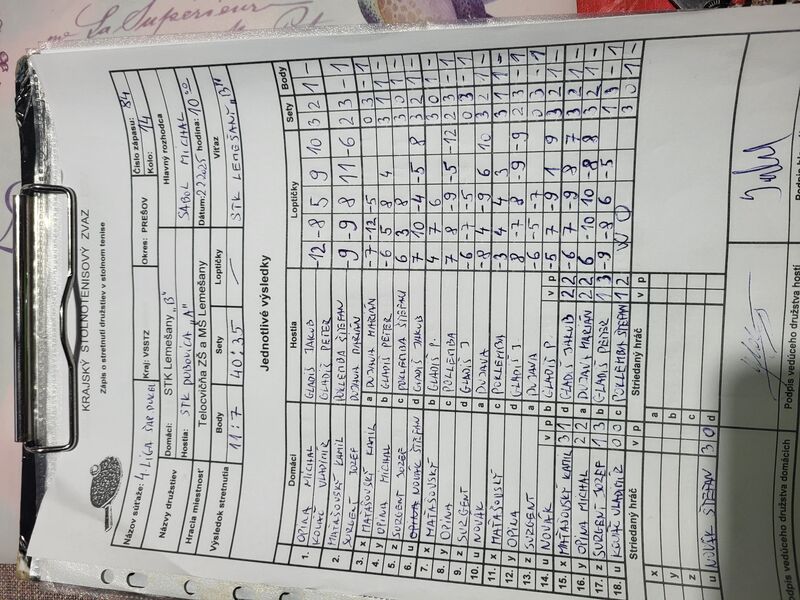 La Supérieur
KRAJSKÝ STOLNOTENISOVÝ ZVAZ
Zápis o stretnutí družstiev v stolnom tenise
Názov súťaže: 4 LIGA Kraj: VSSTZ Okres: PREŠOV Číslo zápasu: 84
Kolo: 14
Názvy družstiev Domáci: STK Lemešany "B" Hlavný rozhodca
Hostia: STK DUBOVICA "A" SABOL MICHAL
Hracia miestnosť Telocvičňa ZŠ a MŠ Lemešany Dátum: 2.2.2025 hodina: 10 00
Výsledok stretnutia Body Sety Loptičky Víťaz
11:7 40:35 / STK LEMEŠANY "B"
Jednotlivé výsledky
Domáci Hostia Loptičky Sety Body
1. OPINA MICHAL GLADIŠ JAKUB -12 -8 5 9 10 3 2 1 -
KOVÁČ VLADIMÍR GLADIŠ PETER
2. MAŤAŠOVSKÝ KAMIL POKLEMBA ŠTEFAN 9 -9 8 11 -6 2 3 - 1
SUZGENT JOZEF DUJAVA MARIÁN
3. x MAŤAŠOVSKÝ KAMIL a DUJAVA MARIÁN -7 -12 -5 0 3 - 1
4. y OPINA MICHAL b GLADIŠ PETER -6 5 8 4 3 1 1 -
5. z SUZGENT JOZEF c POKLEMBA ŠTEFAN 6 3 8 3 0 1 -
6. u NOVÁK ŠTEFAN d GLADIŠ JAKUB 7 10 -4 -5 8 3 2 1 -
7. x MAŤAŠOVSKÝ b GLADIŠ P. 4 7 6 3 0 1 -
8. y OPINA c POKLEMBA 7 8 -9 -5 -12 2 3 - 1
9. z SUZGENT d GLADIŠ J -6 -7 -5 0 3 - 1
10. u NOVÁK a DUJAVA -8 4 -9 6 10 3 2 1 -
11. x MAŤAŠOVSKÝ c POKLEMBA -3 4 4 3 3 1 1 -
12. y OPINA d GLADIŠ J 8 -7 8 -9 -9 2 3 - 1
13. z SUZGENT a DUJAVA -6 -5 -7 0 3 - 1
14. u NOVÁK v p b GLADIŠ P. v p -5 7 -9 1 9 3 2 1 -
15. x MAŤAŠOVSKÝ KAMIL 3 1 d GLADIŠ JAKUB 2 2 -6 7 -9 8 7 3 2 1 -
16. y OPINA MICHAL 2 2 a DUJAVA MARIÁN 2 2 6 -10 10 -8 8 3 2 1 -
17. z SUZGENT JOZEF 1 3 b GLADIŠ PETER 1 3 -9 -8 6 -5 1 3 - 1
18. u KOVÁČ VLADIMÍR 0 0 c POKLEMBA ŠTEFAN 1 2 WO 3 0 1 -
Striedaný hráč v p Striedaný hráč v p
x a
y b
z c
u NOVÁK ŠTEFAN 3 0 d
Podpis vedúceho družstva domácich Podpis vedúceho družstva hostí